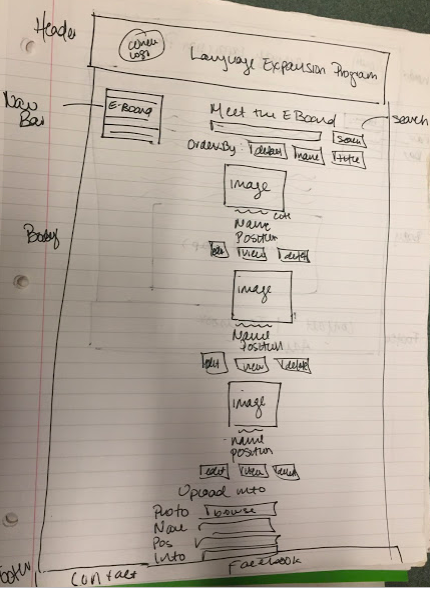 Header
Cornell
Logo
Language Expansion Program
Nav
Bar
E-Board
Meet the E Board
search
Search
Order By: default name title
image
Name
Position
edit view delete
Body
image
Name
Position
edit view delete
image
name
position
edit view
Upload info
Photo browse
Name
Pos
Info
Footer
Contact
Facebook